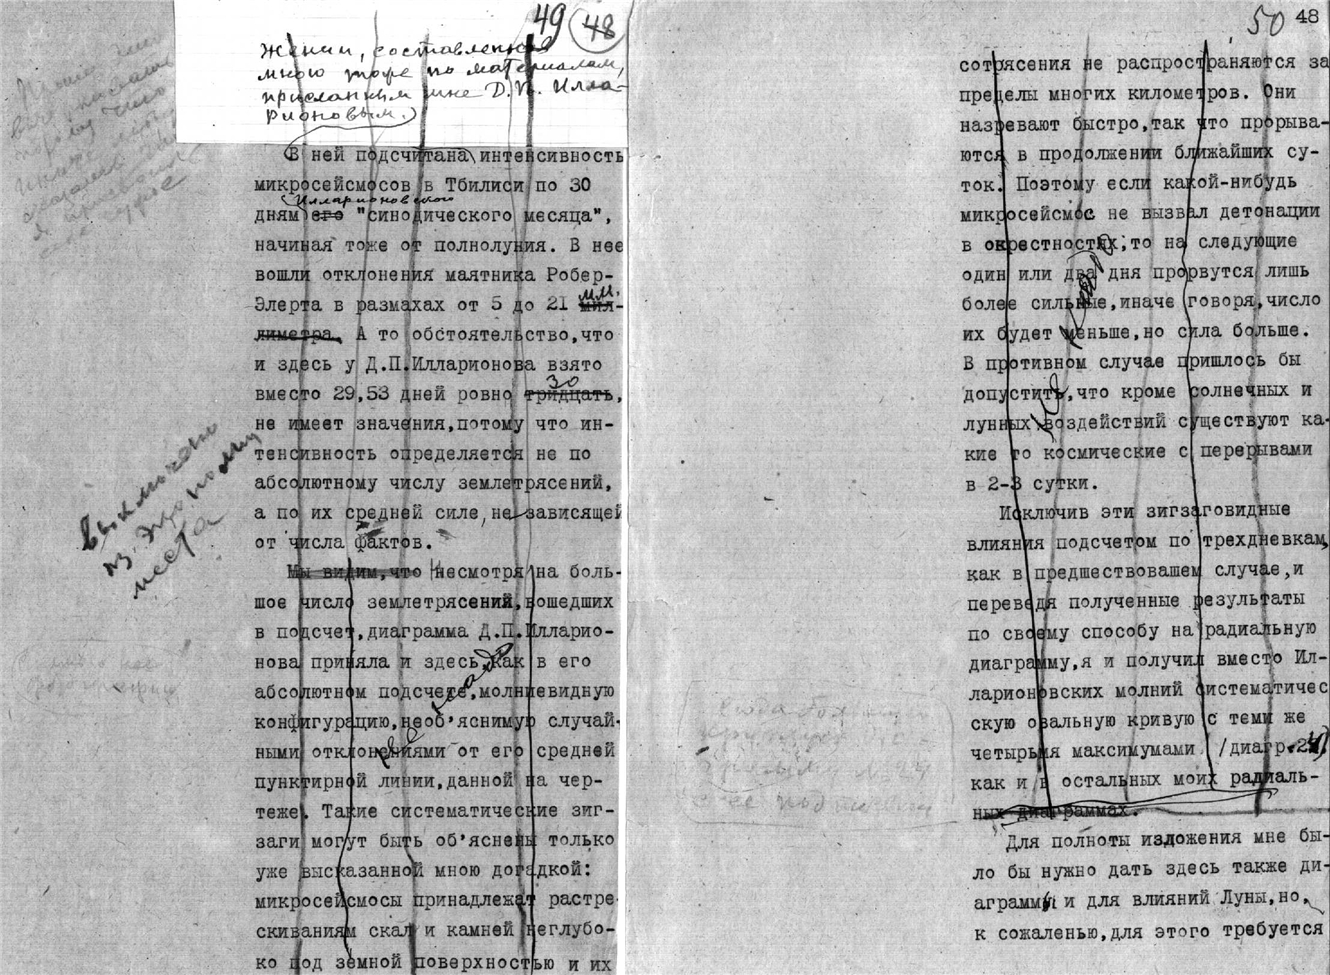 49 48
жении, составленной
мною тоже по материалам,
присланным мне Д.П. Илла-
рионовым.)
В ней подсчитана интенсивность
микросейсмосов в Тбилиси по 30
Илларионовского
дням его "синодического месяца",
начиная тоже от полнолуния. В нее
вошли отклонения маятника Робер-
Элерта в размахах от 5 до 21 мил-
мм.
лиметра. А то обстоятельство,что
и здесь у Д.П.Илларионова взято
30
вместо 29,53 дней ровно тридцать,
не имеет значения,потому что ин-
тенсивность определяется не по
абсолютному числу землетрясений,
а по их средней силе, не зависящей
от числа фактов.
Мы видим,что несмотря на боль-
шое число землетрясений,вошедших
в подсчет,диаграмма Д.П.Илларио-
нова приняла и здесь,как в его
абсолютном подсчете,молниевидную
конфигурацию,необ'яснимую случай-
ными отклонениями от его средней
пунктирной линии,данной на чер-
теже. Такие систематические зиг-
заги могут быть об'яснены только
уже высказанной мною догадкой:
микросейсмосы принадлежат растре
скиваниям скал и камней неглубо-
ко под земной поверхностью и их
выключено
из экономии
места
50 48
сотрясения не распространяются за
пределы многих километров. Они
назревают быстро,так что прорыва-
ются в продолжении ближайших су-
ток. Поэтому если какой-нибудь
микросейсмос не вызвал детонации
в окрестностях,то на следующие
один или два дня прорвутся лишь
более сильные,иначе говоря,число
их будет меньше,но сила больше.
В противном случае пришлось бы
допустить,что кроме солнечных и
лунных воздействий существуют ка-
кие то космические с перерывами
в 2-3 сутки.
Исключив эти зигзаговидные
влияния подсчетом по трехдневкам,
как в предшествовашем случае,и
переведя полученные результаты
по своему способу на радиальную
диаграмму,я и получил вместо Ил-
ларионовских молний систематичес
скую овальную кривую с теми же
четырьмя максимумами /диагр.24)
как и в остальных моих радиаль-
ных диаграммах.
Для полноты изложения мне бы-
ло бы нужно дать здесь также ди-
аграммы и для влияний Луны,но,
к сожаленью,для этого требуется